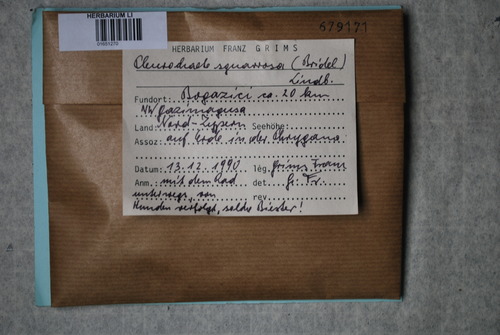 HERBARIUM LI
01603270
679171
HERBARIUM FRANZ GRIMS
Pleurochaete squarrosa (Bridel)
Lindb.
Fundort: Bogazici ca. 20 km
NW Gazimagusa
Land: Nord-Zypern Seehöhe:
Assoz. auf Erde in der Phrygana
Datum: 13.12.1990 lég. Grims Franz
Anm. mit dem Rad det. G. Fr.
unterwegs, von rev.
Hunden verfolgt, solche Biester!